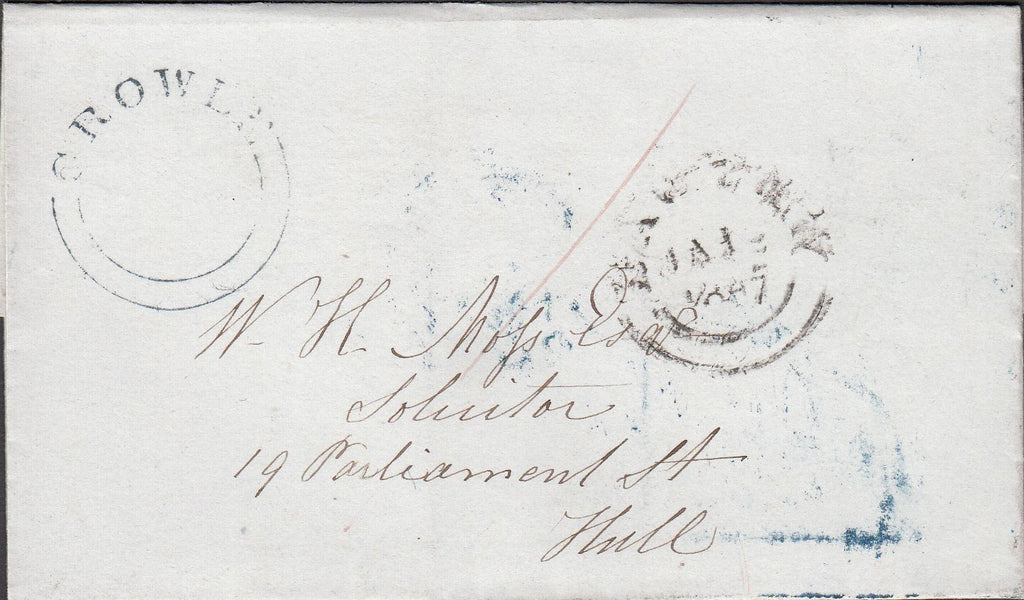 CROWLE
BAWTRY
JA 1
W. H. Moss Esqr
Solicitor
19 Parliament St
Hull